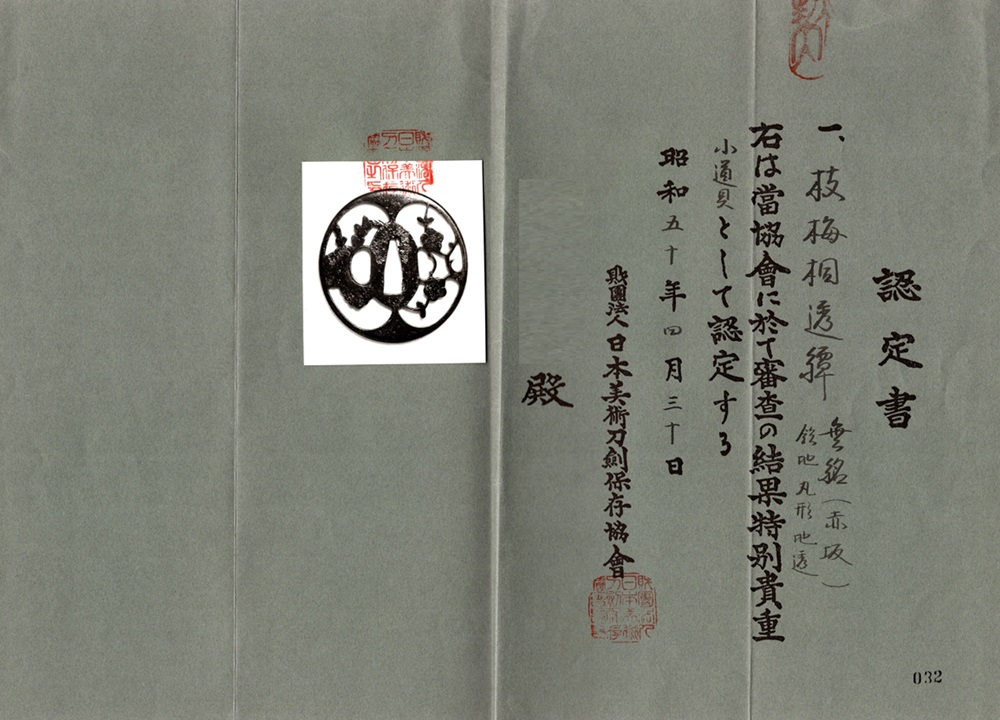 認定書
一、枝梅桐透鐔 無銘(赤坂)
鉄地丸形地透
右は當協會に於て審査の結果特別貴重
小道具として認定する
昭和五十年四月三十日
財團法人日本美術刀劍保存協會
殿
032